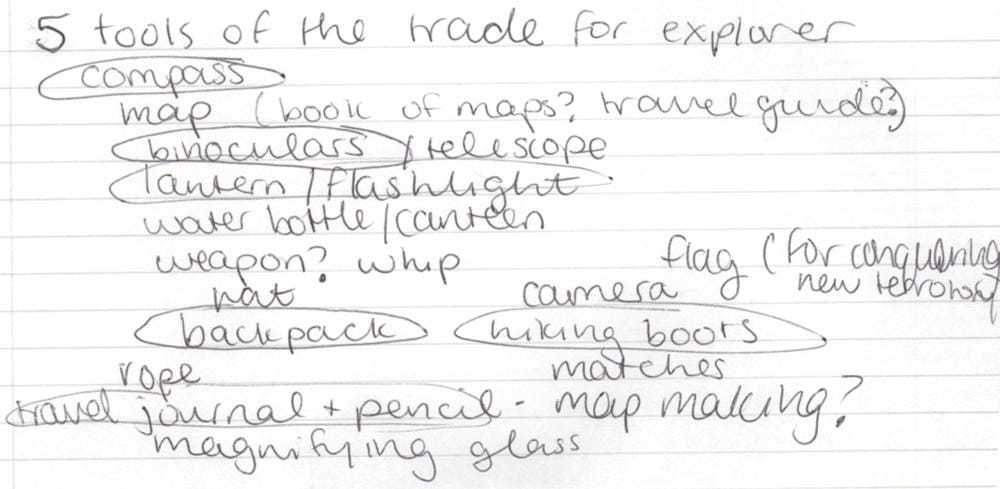 5 tools of the trade for explorer
compass
map (book of maps? travel guide?)
binoculars / telescope
lantern / flashlight
water bottle / canteen
weapon? whip
flag (for conquering
new
hat
camera
backpack
hiking boots
rope
matches
travel journal + pencil - map making?
magnifying glass